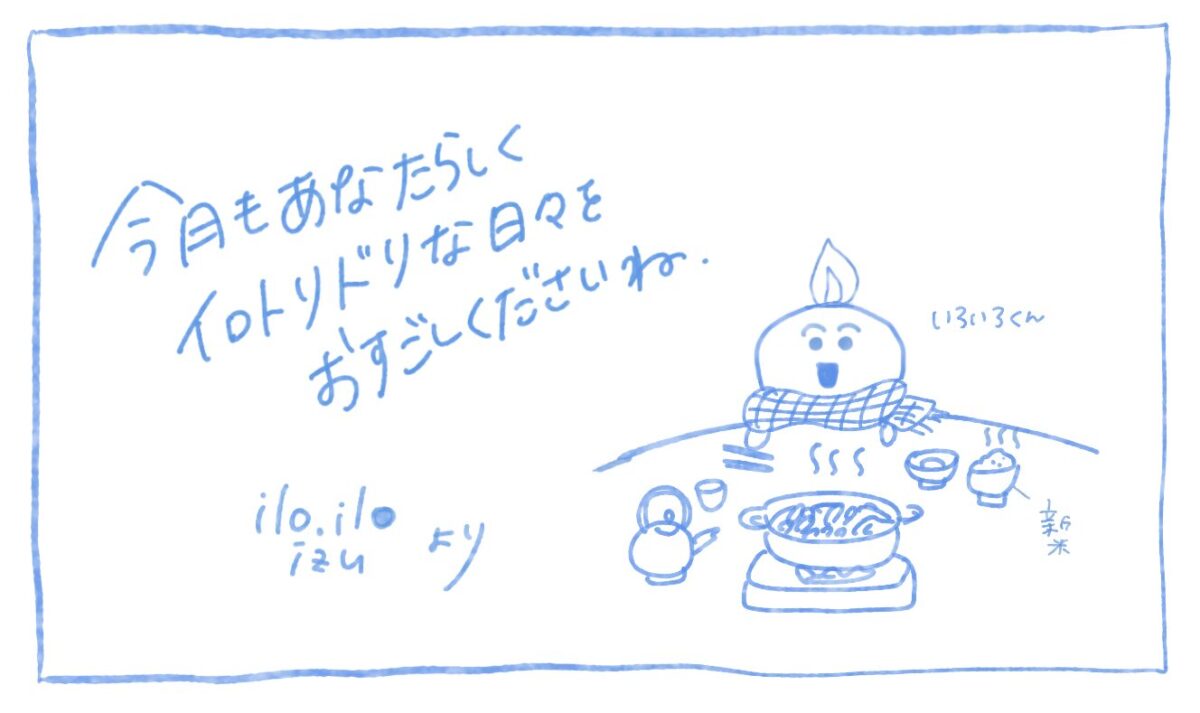 今月もあなたらしく
イロトリドリな日々を
おすごしくださいね.
ilo.ilo
izu より
いろいろくん
新米